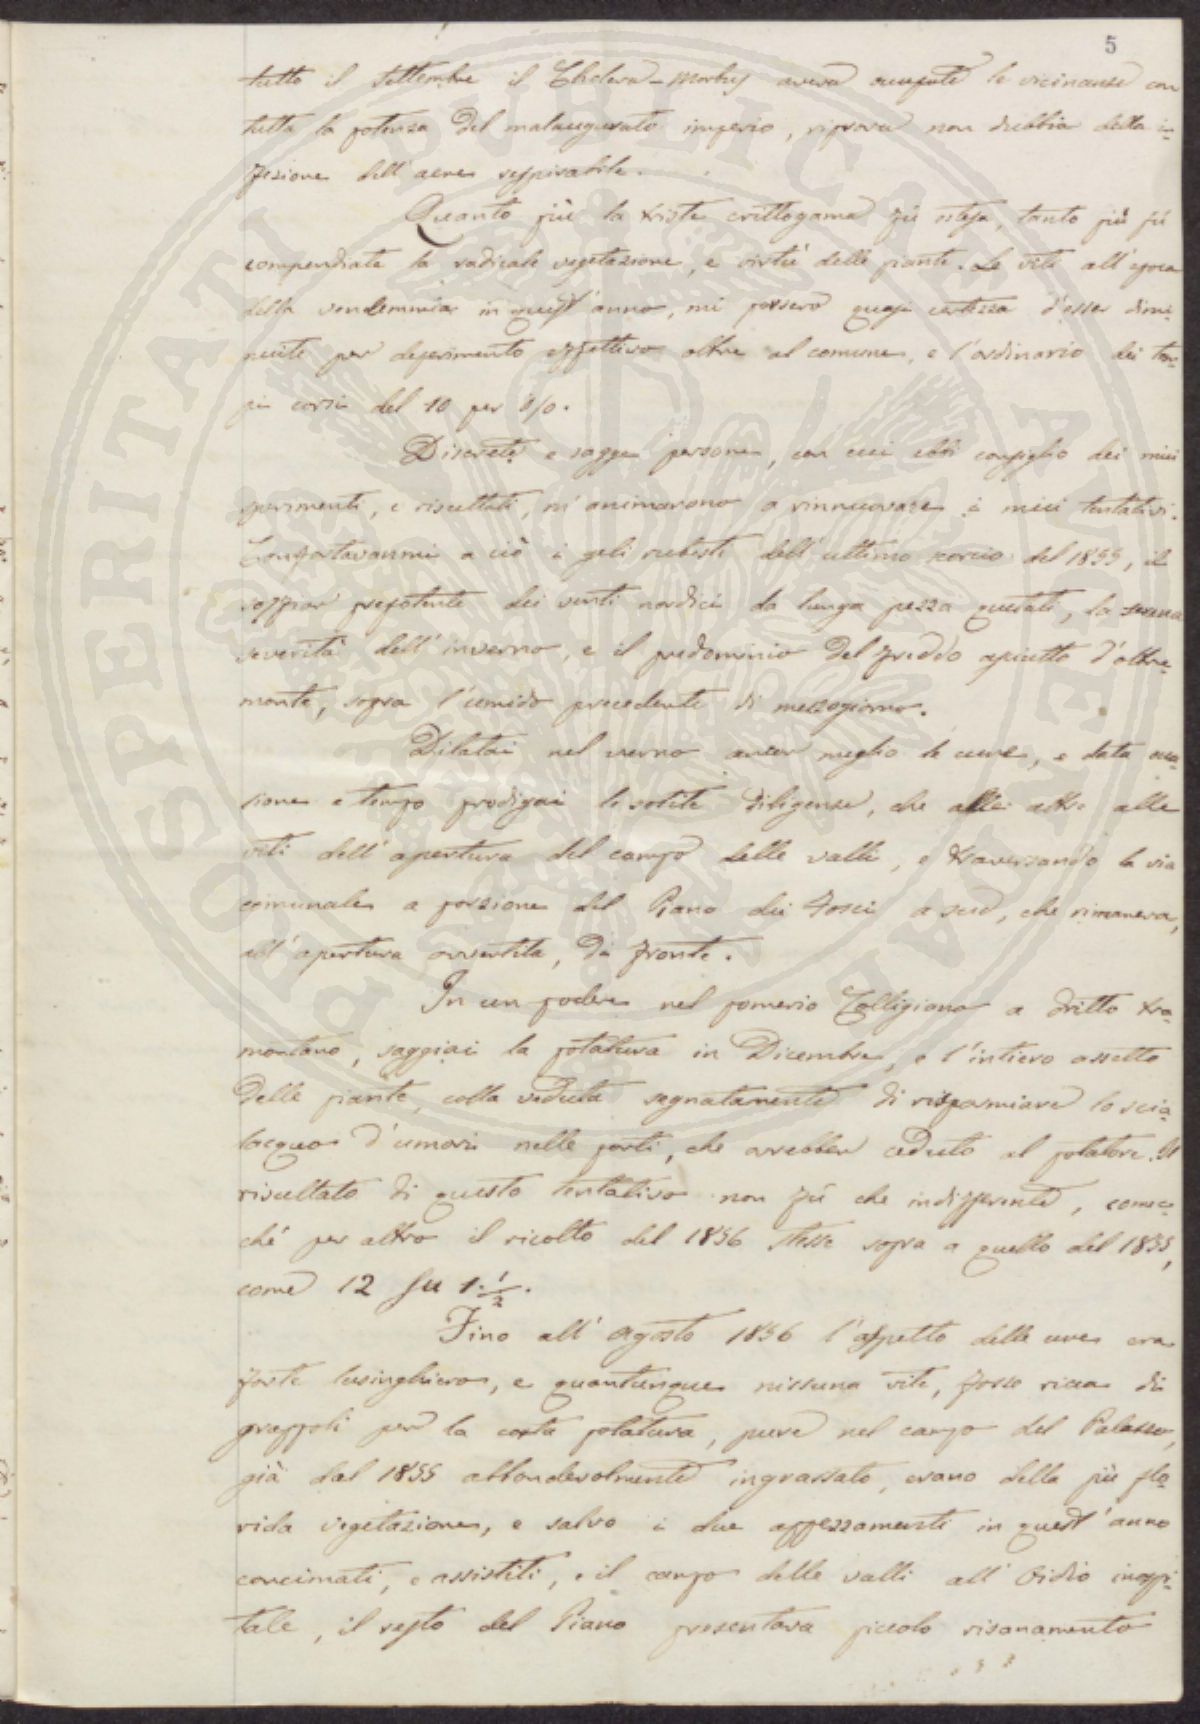 5
tutto il Settembre il Cholera-Morbus aveva occupate le vicinanze con
tutta la potenza del malaugurato imperio, riprova non dubbia della in=
fezione dell'aere respirabile.
Quanto più la triste crittogama fù estesa, tanto più fù
compendiata la radicale vegetazione, e virtù delle piante. Le viti all'epoca
della vendemmia in quest'anno, mi porsero quasi certezza d'esser dimi=
nuite per deperimento effettivo oltre al comune, e l'ordinario dei tem=
pi corsi del 10 per 0/0.
Discrete e sagge persone, con cui ebbi consiglio dei miei
sperimenti, e risultati, m'animarono a rinnuovare i miei tentativi.
Confortavanmi a ciò i geli rubesti dell'ultimo scorcio del 1855, il
soffiar prepotente dei venti nordici da lunga pezza quetati, la serena
severità dell'inverno, e il predominio del freddo asciutto d'oltre=
monte, sopra l'umido precedente di mezzogiorno.
Dilatai nel verno ancor meglio le cure, e data occa=
sione e tempo prodigai le solite diligenze, che alle altre alle
viti dell'apertura del campo delle valli, e traversando la via
comunale a porzione del Piano dei Fosci a sud, che rimaneva,
all'apertura avvertita, di fronte.
In un podere nel pomerio Colligiano a dritto tra=
montano, saggiai la potatura in Dicembre, e l'intiero assetto
delle piante, colla veduta segnatamente di risparmiare lo scia=
lacquo d'umori nelle parti, che avrebber ceduto al potatore. Il
risultato di questo tentativo non fù che indifferente, comec=
chè per altro il ricolto del 1856 stesse sopra a quello del 1855,
come 12 su 1. 1/2.
Fino all'agosto 1856 l'aspetto delle uve era
forte lusinghiero, e quantunque nissuna vite, fosse ricca di
grappoli per la corta potatura, pure nel campo del Palazzo,
già dal 1855 abbondevolmente ingrassato, erano della più flo=
rida vegetazione, e salvo i due appezzamenti in quest'anno
concimati, e assistiti, e il campo delle valli all'Oidio inospi=
tale, il resto del Piano presentava piccolo risanamento
PROSPERITATI PVBLICAE AVGENDAE